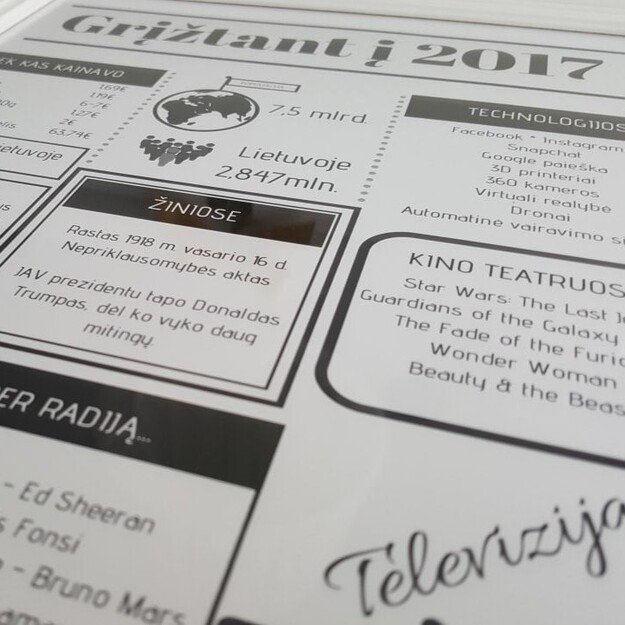 Grįžtant į 2017
EK KAS KAINAVO
169€
119€
6-7€
1,27€
2€
63,74€
ietuvoje
7,5 mlrd.
Lietuvoje
2,847mln.
TECHNOLOGIJOS
Facebook * Instagram
Snapchat
Google paieška
3D printeriai
360 kameros
Virtuali realybė
Dronai
Automatinė vairavimo si
ŽINIOSE
Rastas 1918 m. vasario 16 d.
Nepriklausomybės aktas
JAV prezidentu tapo Donaldas
Trumpas, dėl ko vyko daug
mitingų
KINO TEATRUOS
Star Wars: The Last Je
Guardians of the Galaxy
The Fade of the Furio
Wonder Woman
Beauty & the Beas
ER RADIJĄ...
- Ed Sheeran
s Fonsi
- Bruno Mars
Televizija